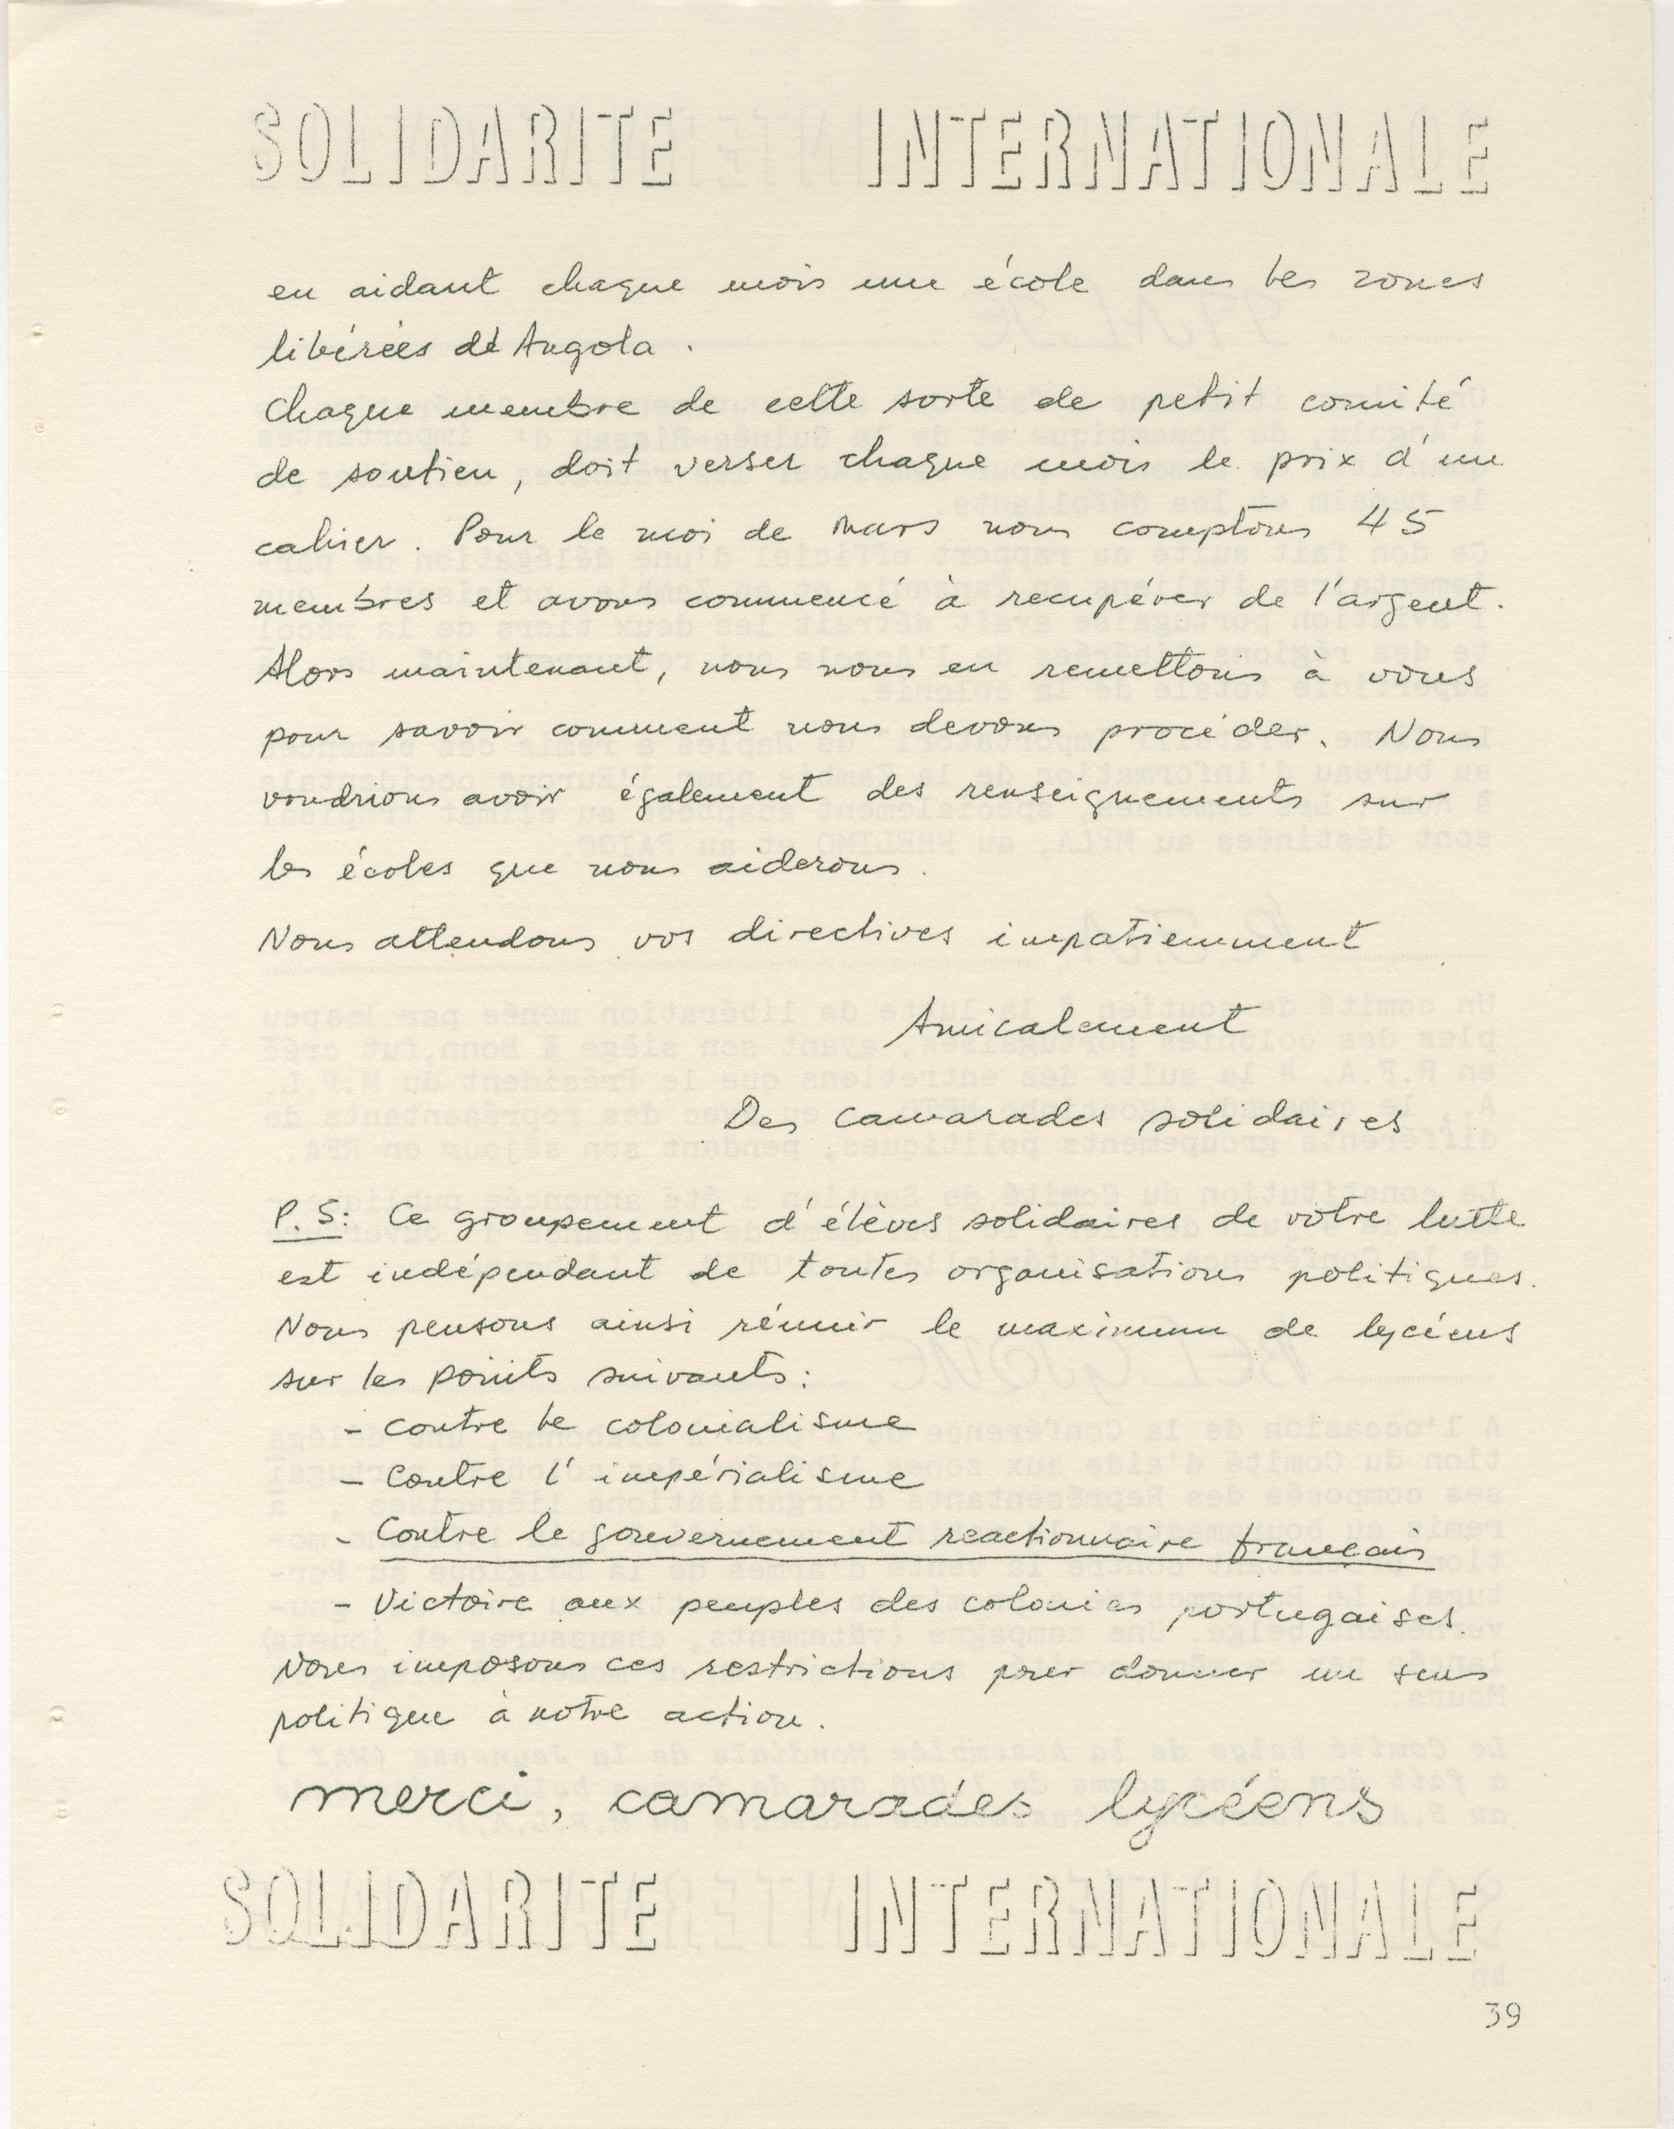 SOLIDARITE INTERNATIONALE
en aidant chaque mois une école dans les zones
libérées d'Angola.
Chaque membre de cette sorte de petit comité
de soutien, doit verser chaque mois le prix d'un
cahier. Pour le moi de Mars nous comptons 45
membres et avons commencé à recupérer de l'argent.
Alors maintenant, nous nous en remettons à vous
pour savoir comment nous devons procéder. Nous
voudrions avoir également des renseignements sur
les écoles que nous aiderons.
Nous attendons vos directives impatiemment
Amicalement
Des camarades solidaires
P.S: Ce groupement d'élèves solidaires de votre lutte
est indépendant de toutes organisations politiques.
Nous pensons ainsi réunir le maximum de lycéens
sur les points suivants:
- contre le colonialisme
- Contre l'impérialisme
- Contre le gouvernement reactionnaire français
- Victoire aux peuples des colonies portugaises.
Nous imposons ces restrictions pour donner un sens
politique à notre action.
merci, camarades lycéens
SOLIDARITE INTERNATIONALE
39